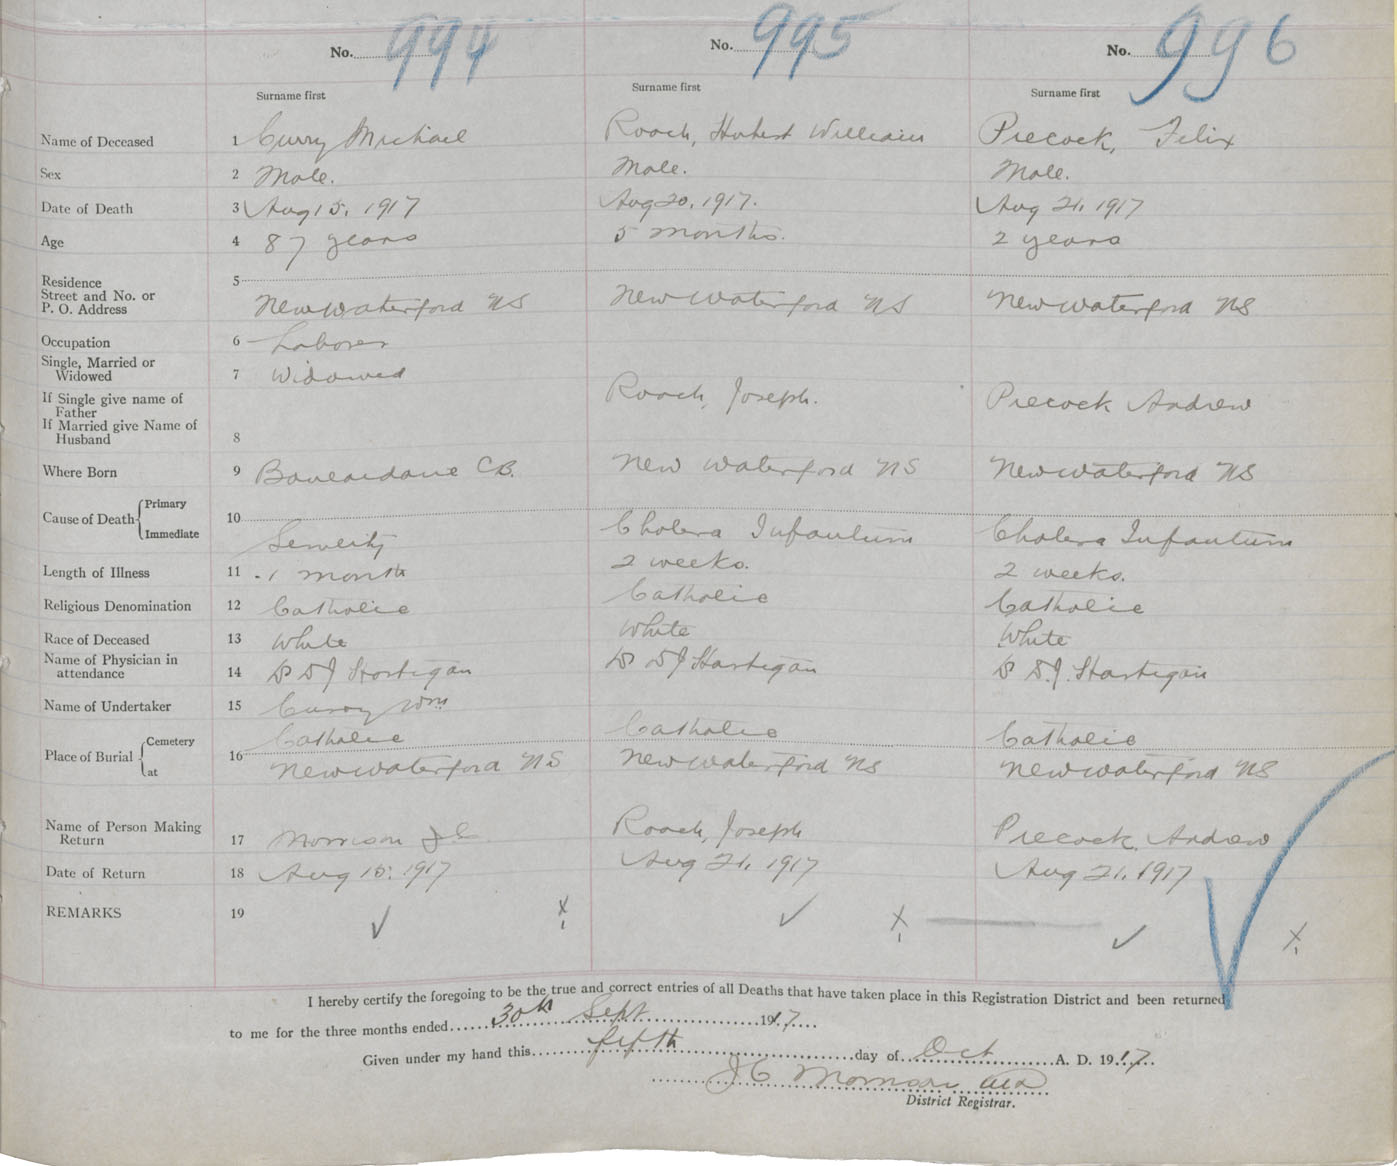 No. 994 No. 995 No. 996
Surname first Surname first Surname first
Name of Deceased 1 Curry Michael Roach, Hubert William Precock, Felix
Sex 2 Male. Male. Male.
Date of Death 3 Aug 15, 1917 Aug 20, 1917. Aug 21, 1917
Age 4 87 years 5 months. 2 years
Residence 5
Street and No. or
P. O. Address New Waterford NS New Waterford NS New Waterford NS
Occupation 6 Laborer
Single, Married or
Widowed 7 Widowed
If Single give name of
Father Roach, Joseph. Precock Andrew
If Married give Name of
Husband 8
Where Born 9 C.B. New Waterford NS New Waterford NS
Cause of Death Primary
Immediate 10 Cholera Infantum Cholera Infantum
Length of Illness 11 1 month 2 weeks. 2 weeks.
Religious Denomination 12 Catholic Catholic Catholic
Race of Deceased 13 White White White
Name of Physician in
attendance 14 Dr D J Hartigan Dr D J Hartigan Dr D. J. Hartigan
Name of Undertaker 15 Curry Wm
Place of Burial Cemetery Catholic Catholic Catholic
at 16 New Waterford NS New Waterford NS New Waterford NS
Name of Person Making
Return 17 Morrison J C Roach, Joseph Precock, Andrew
Date of Return 18 Aug 15, 1917 Aug 21, 1917 Aug 21, 1917
REMARKS 19
I hereby certify the foregoing to be the true and correct entries of all Deaths that have taken place in this Registration District and been returned
to me for the three months ended 30th Sept 1917
Given under my hand this fifth day of Oct A. D. 1917
J C Morrison MD
District Registrar.